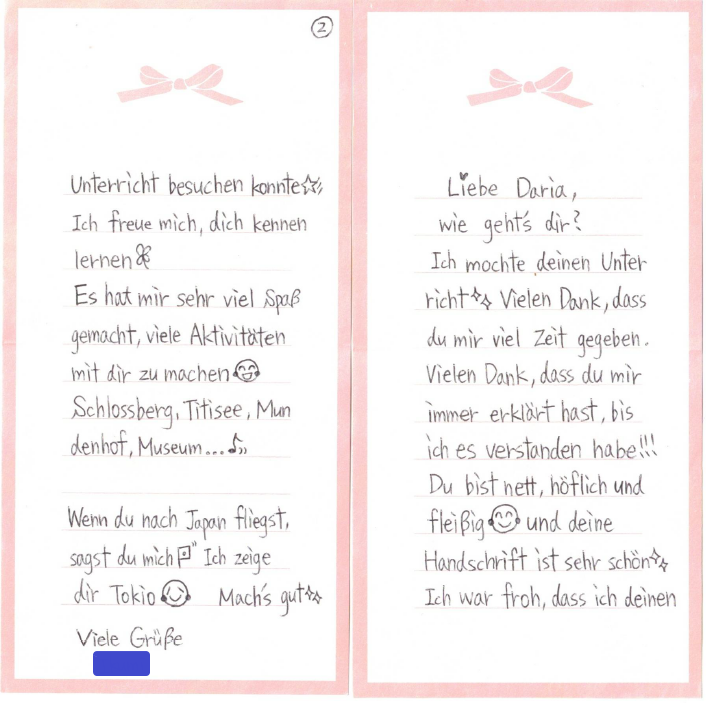 Liebe Daria,
wie geht's dir?
Ich mochte deinen Unter
richt Vielen Dank, dass
du mir viel Zeit gegeben.
Vielen Dank, dass du mir
immer erklärt hast, bis
ich es verstanden habe!!!
Du bist nett, höflich und
fleißig und deine
Handschrift ist sehr schön
Ich war froh, dass ich deinen
②
Unterricht besuchen konnte
Ich freue mich, dich kennen
lernen
Es hat mir sehr viel Spaß
gemacht, viele Aktivitäten
mit dir zu machen
Schlossberg, Titisee, Mun
denhof, Museum...
Wenn du nach Japan fliegst,
sagst du mich Ich zeige
dir Tokio Mach's gut
Viele Grüße